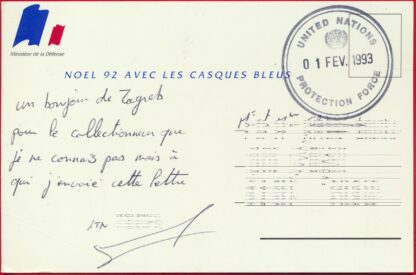 Ministère de la Défense
UNITED NATIONS
01 FEV. 1993
PROTECTION FORCE
NOEL 92 AVEC LES CASQUES BLEUS
un bonjour de Zagreb
pour le collectionneur que
je ne connais pas mais à
qui j'envoie cette lettre